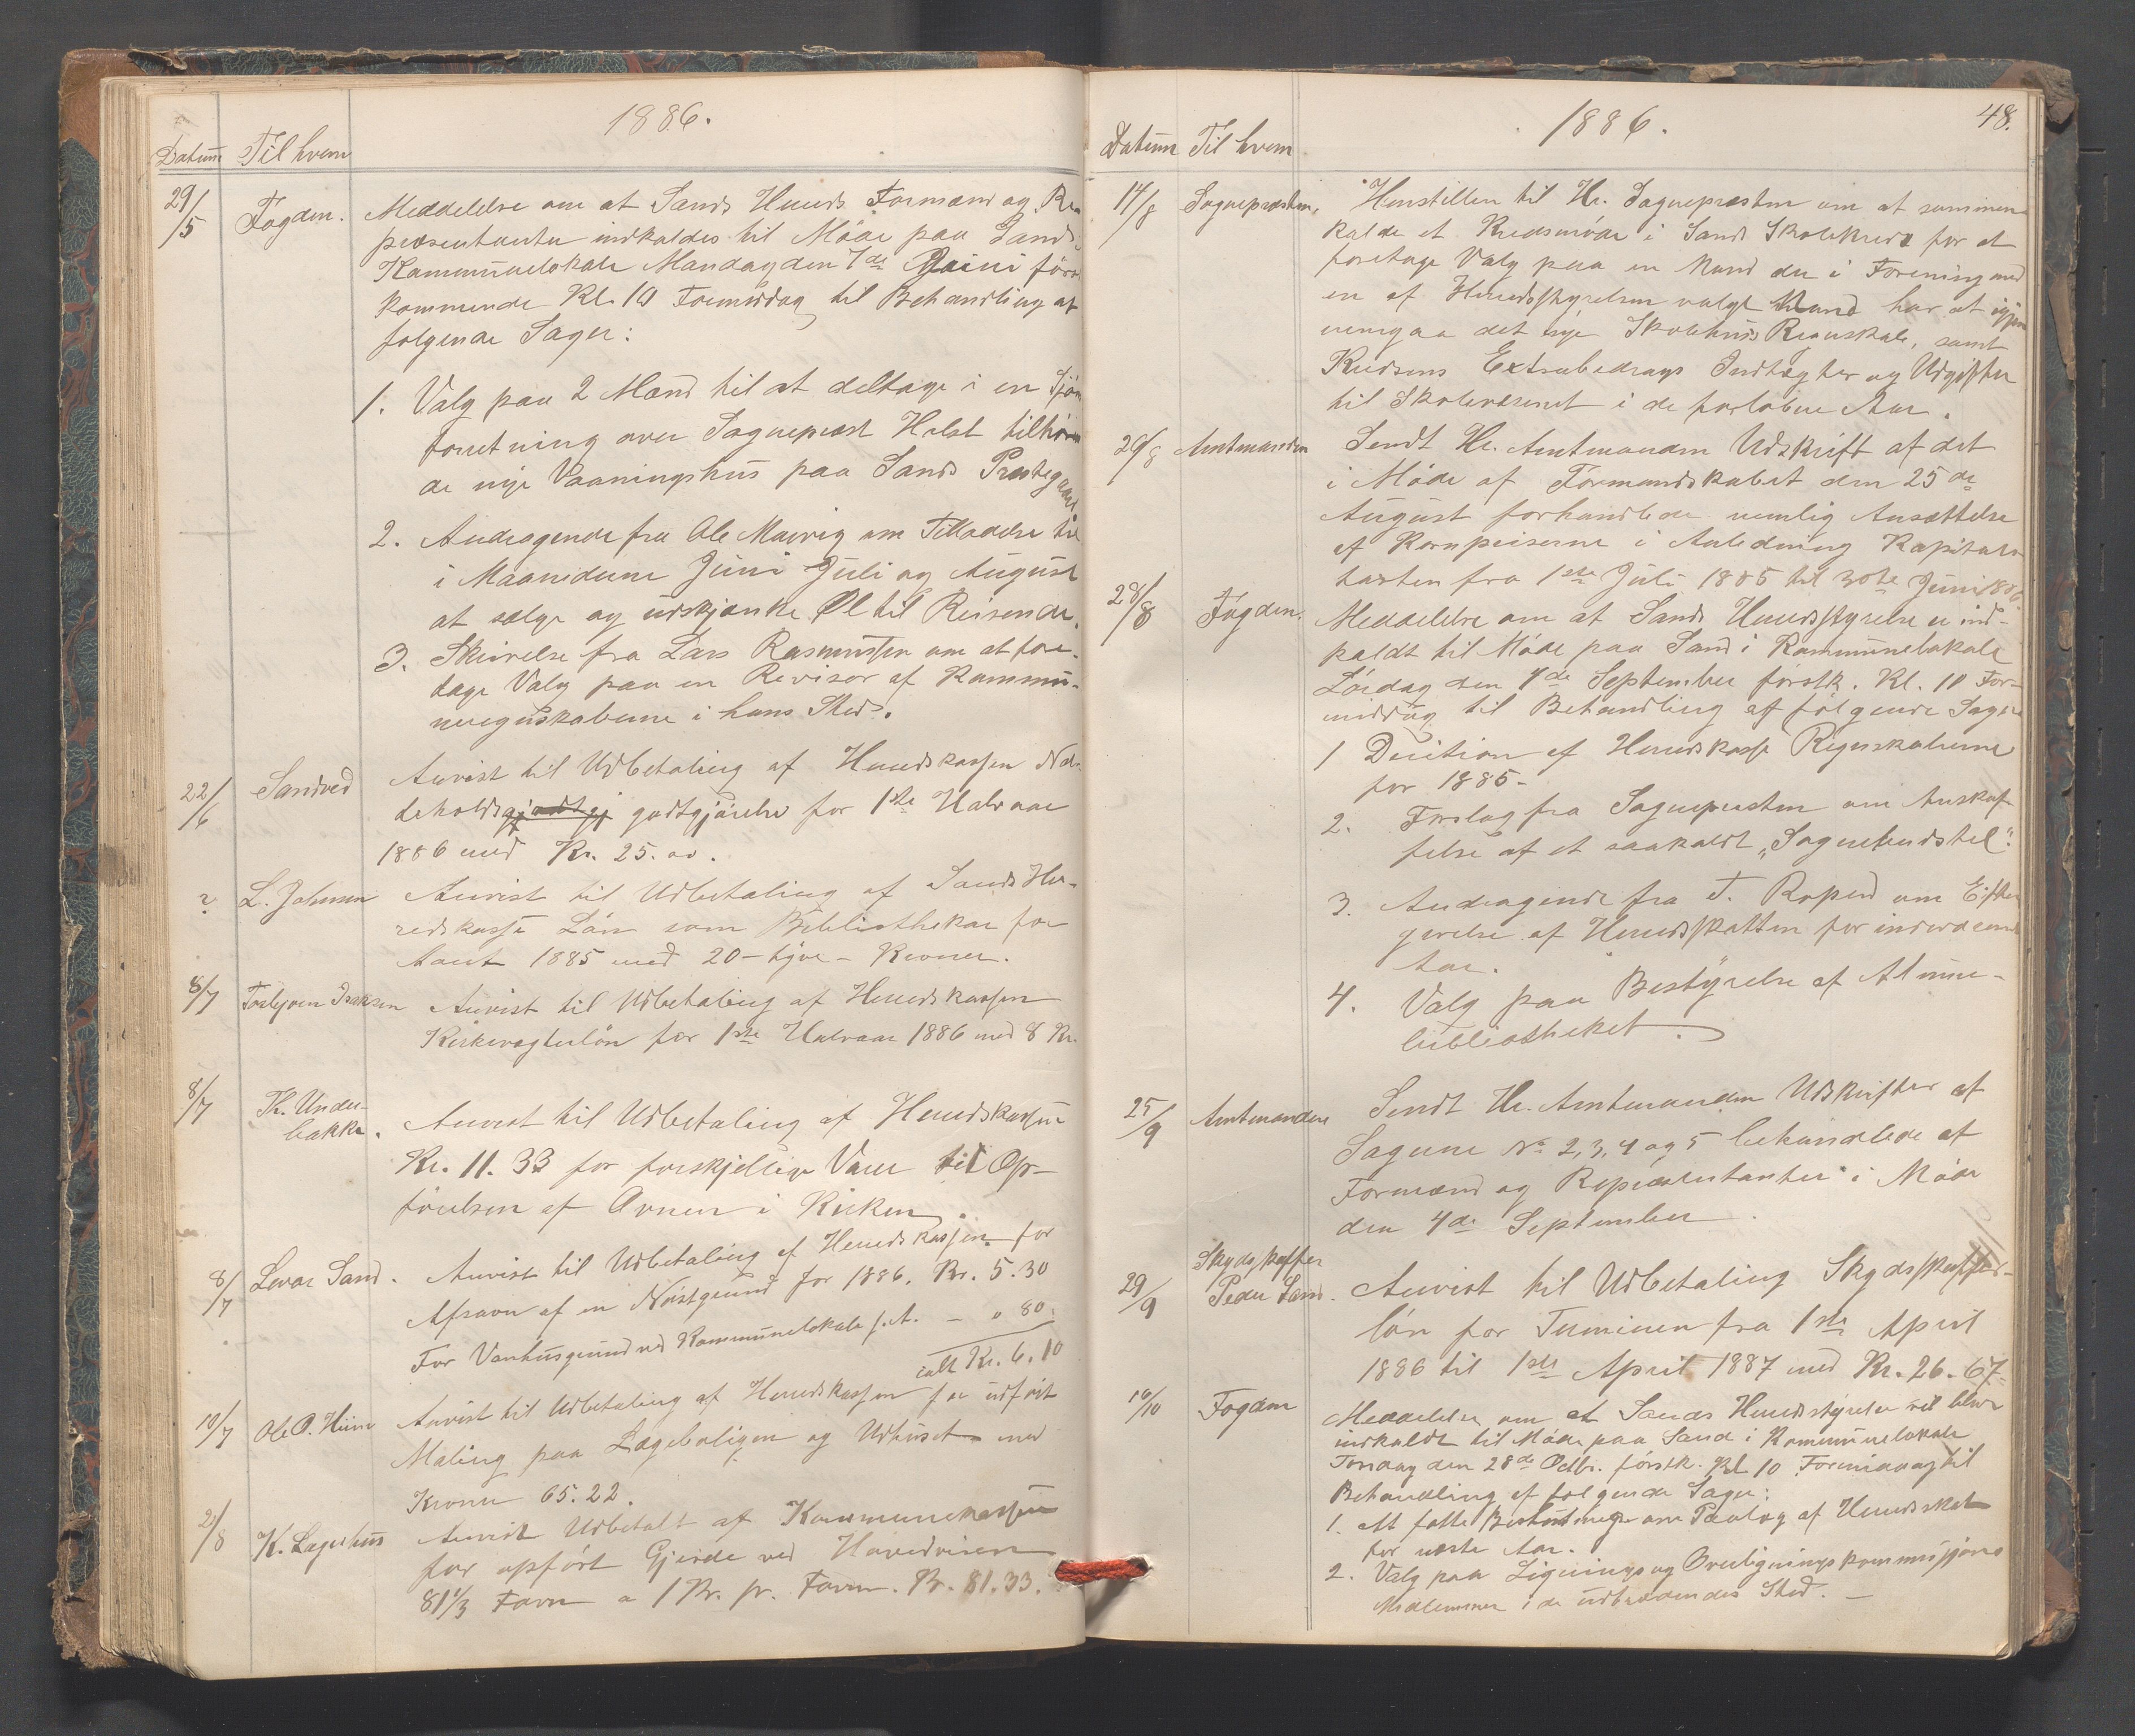 1886.
Datum Til hvem
29/5 Fogden. Meddelelse om at Sands Herreds Formænd og Re-
præsentanter indkaldes til Möde paa Sands
Kommunelokale Mandag den 7de Juni först-
kommende Kl. 10 Formiddag til Behandling af
følgende Sager:
1. Valg paa 2 Mænd til at deltage i en
forretning over Sogneprest Holst tilhøren-
de nye Vaaningshus paa Sands Prestegaard.
2. Andragende fra Ole Mairig om Tilladelse til
i Maanederne Juni Juli og August
at sælge og udskjænke Øl til Reisende.
3. Skrivelse fra Lars Rasmussen om at fore-
tage Valg paa en Revisor af Kommu-
neregnskaberne i hans Sted.
22/6 Sandved Anvist til Udbetaling af Herredskassen
godtgjörelse for 1ste Halvaar
1886 med Kr. 25. oo.
? L. Johnsen Anvist til Udbetaling af Sands Her-
redskasse Lön som Bibliothekar for
Aaret 1885 med 20 - tyve - Kroner.
8/7 Torbjörn Isaksen Anvist til Udbetaling af Herredskassen
Kirkevægterlön for 1ste Halvaar 1886 med 8 Kr.
8/7 Th. Under-
bakke. Anvist til Udbetaling af Herredskassen
Kr. 11. 33 for forskjellige Varer til Op-
förelsen af Ovnen i Kirken.
8/7 Levar Sand. Anvist til Udbetaling af Herredskassen for
Afsavn af en Nöstgrund for 1886. Kr. 5.30
For Vanhusgrund ved Kommunelokale f. A. - " 80.
ialt Kr. 6.10
10/7 Ole O. Hiim Anvist til Udbetaling af Herredskassen for udfört
Maling paa Lægeboligen og Udhuset med
Kroner 65.22.
2/8 K. Lagerhus Anvist Udbetalt af Kommunekassen
for opfört Gjerde ved Hovedveien
81 1/3 Favn a 1 Kr. pr. Favn. Kr. 81.33.
1886. 48.
Datum Til hvem
14/8 Sognepresten. Henstillen til Hr. Sognepresten om at sammen-
kalde et Kredsmöde i Sands Skolekreds for at
foretage Valg paa en Mand der i Forening med
en af Herredsstyrelsen valgt Mand har at igjen-
nemgaa det nye Skolehus Regnskab, samt
Kredsens Extrabedrags Indtægter og Udgifter
til Skolevæsenet i de forløbne Aar.
26/8 Amtmanden Sendt Hr. Amtmanden Udskrift af det
i Möde af Formandskabet den 25de
August forhandlede nemlig Ansættelse
af Kornpriserne i Anledning Kapitels-
taxten fra 1ste Juli 1885 til 30te Juni 1886.
28/8 Fogden. Meddelelse om at Sands Herredsstyrelse er ind-
kaldt til Möde paa Sand i Kommunelokale
Lördag den 4de September förstk. Kl. 10 For-
middag til Behandling af følgende Sager
1 Decition af Herredskasse Regnskaberne
for 1885-
2. Forslag fra Sognepresten om Anskaf-
felse af et saakaldt "Sognebudstel".
3. Andragende fra T. Roperd om Efter-
givelse af Herredsskatten for inderværende
Aar.
4. Valg paa Bestyrelse af Almue-
bibliotheket.
25/9 Amtmanden Sendt Hr. Amtmanden Udskrifter af
Sagerne No 2, 3, 4 og 5 behandlede af
Formænd og Repræsentanter i Möde
den 4de September.
29/9 Skydsskaffer
Peder Sand. Anvist til Udbetaling Skydsskaffer-
lön for Terminen fra 1ste April
1886 til 1ste April 1887 med Kr. 26. 67
16/10 Fogden Meddelelse om at Sands Herredsstyrelse vil blive
indkaldt til Möde paa Sand i Kommunelokale
Torsdag den 28de Octbr. förstk. Kl. 10 Formiddag til
Behandling af følgende Sager:
1. At fatte Beslutninger om Paalæg af Herredsskat
for næste Aar.
2. Valg paa Lignings og Overligningskommissjons
Medlemmer i de udtrædendes Sted. -